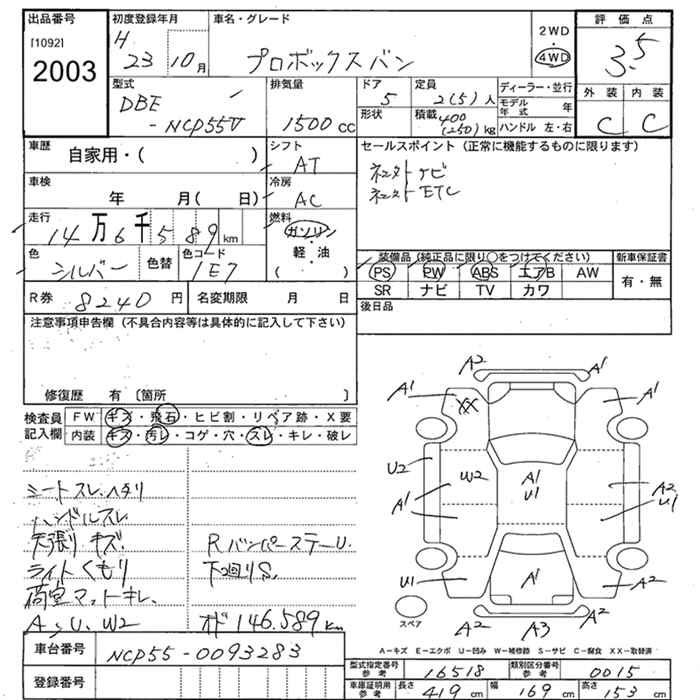 出品番号
[1092]
2003
初度登録年月
H
23 10月
車名・グレード
プロボックスバン
2WD
4WD
評価点
3.5
外装 内装
C C
型式
DBE
-NCP55V
排気量
1500cc
ドア
5
形状
定員
2(5)人
積載 400
(250)kg
ディーラー・並行
モデル年式 年
ハンドル 左・右
車歴
自家用・( )
シフト
AT
車検
年 月( 日)
冷房
AC
走行
14万6千589km
燃料
ガソリン
軽・油
( )
色
シルバー
色替
色コード
1E7
R券 8240円
名変期限 月 日
セールスポイント(正常に機能するものに限ります)
ナビ
ETC
装備品(純正品に限り○をつけてください)
PS PW ABS エアB AW
SR ナビ TV カワ
新車保証書
有・無
後日品
注意事項申告欄(不具合内容等は具体的に記入して下さい)
修復歴 有〔箇所 〕
検査員
記入欄
FW キズ・飛石・ヒビ割・リペア跡・X要
内装 キズ・汚レ・コゲ・穴・スレ・キレ・破レ
シートスレ.ヘタリ
ハンドルスレ
天張りキズ.
ライトくもり
荷室マットキレ.
A、U、W2
RバンパーステーU.
下廻りS.
オド146.589km
A2
A1
A1
A1
XX
U2
W2
A1
U1
A1
A2
U1
U1
A1
A2
A2
A3
A2
スペア
A−キズ E−エクボ U−凹み W−補修跡 S−サビ C−腐食 XX−取替済
車台番号 NCP55-0093283
登録番号
型式指定番号
参考
16518
類別区分番号
参考
0015
車庫証明用
参考
長さ 419cm 幅 169cm 高さ 153cm